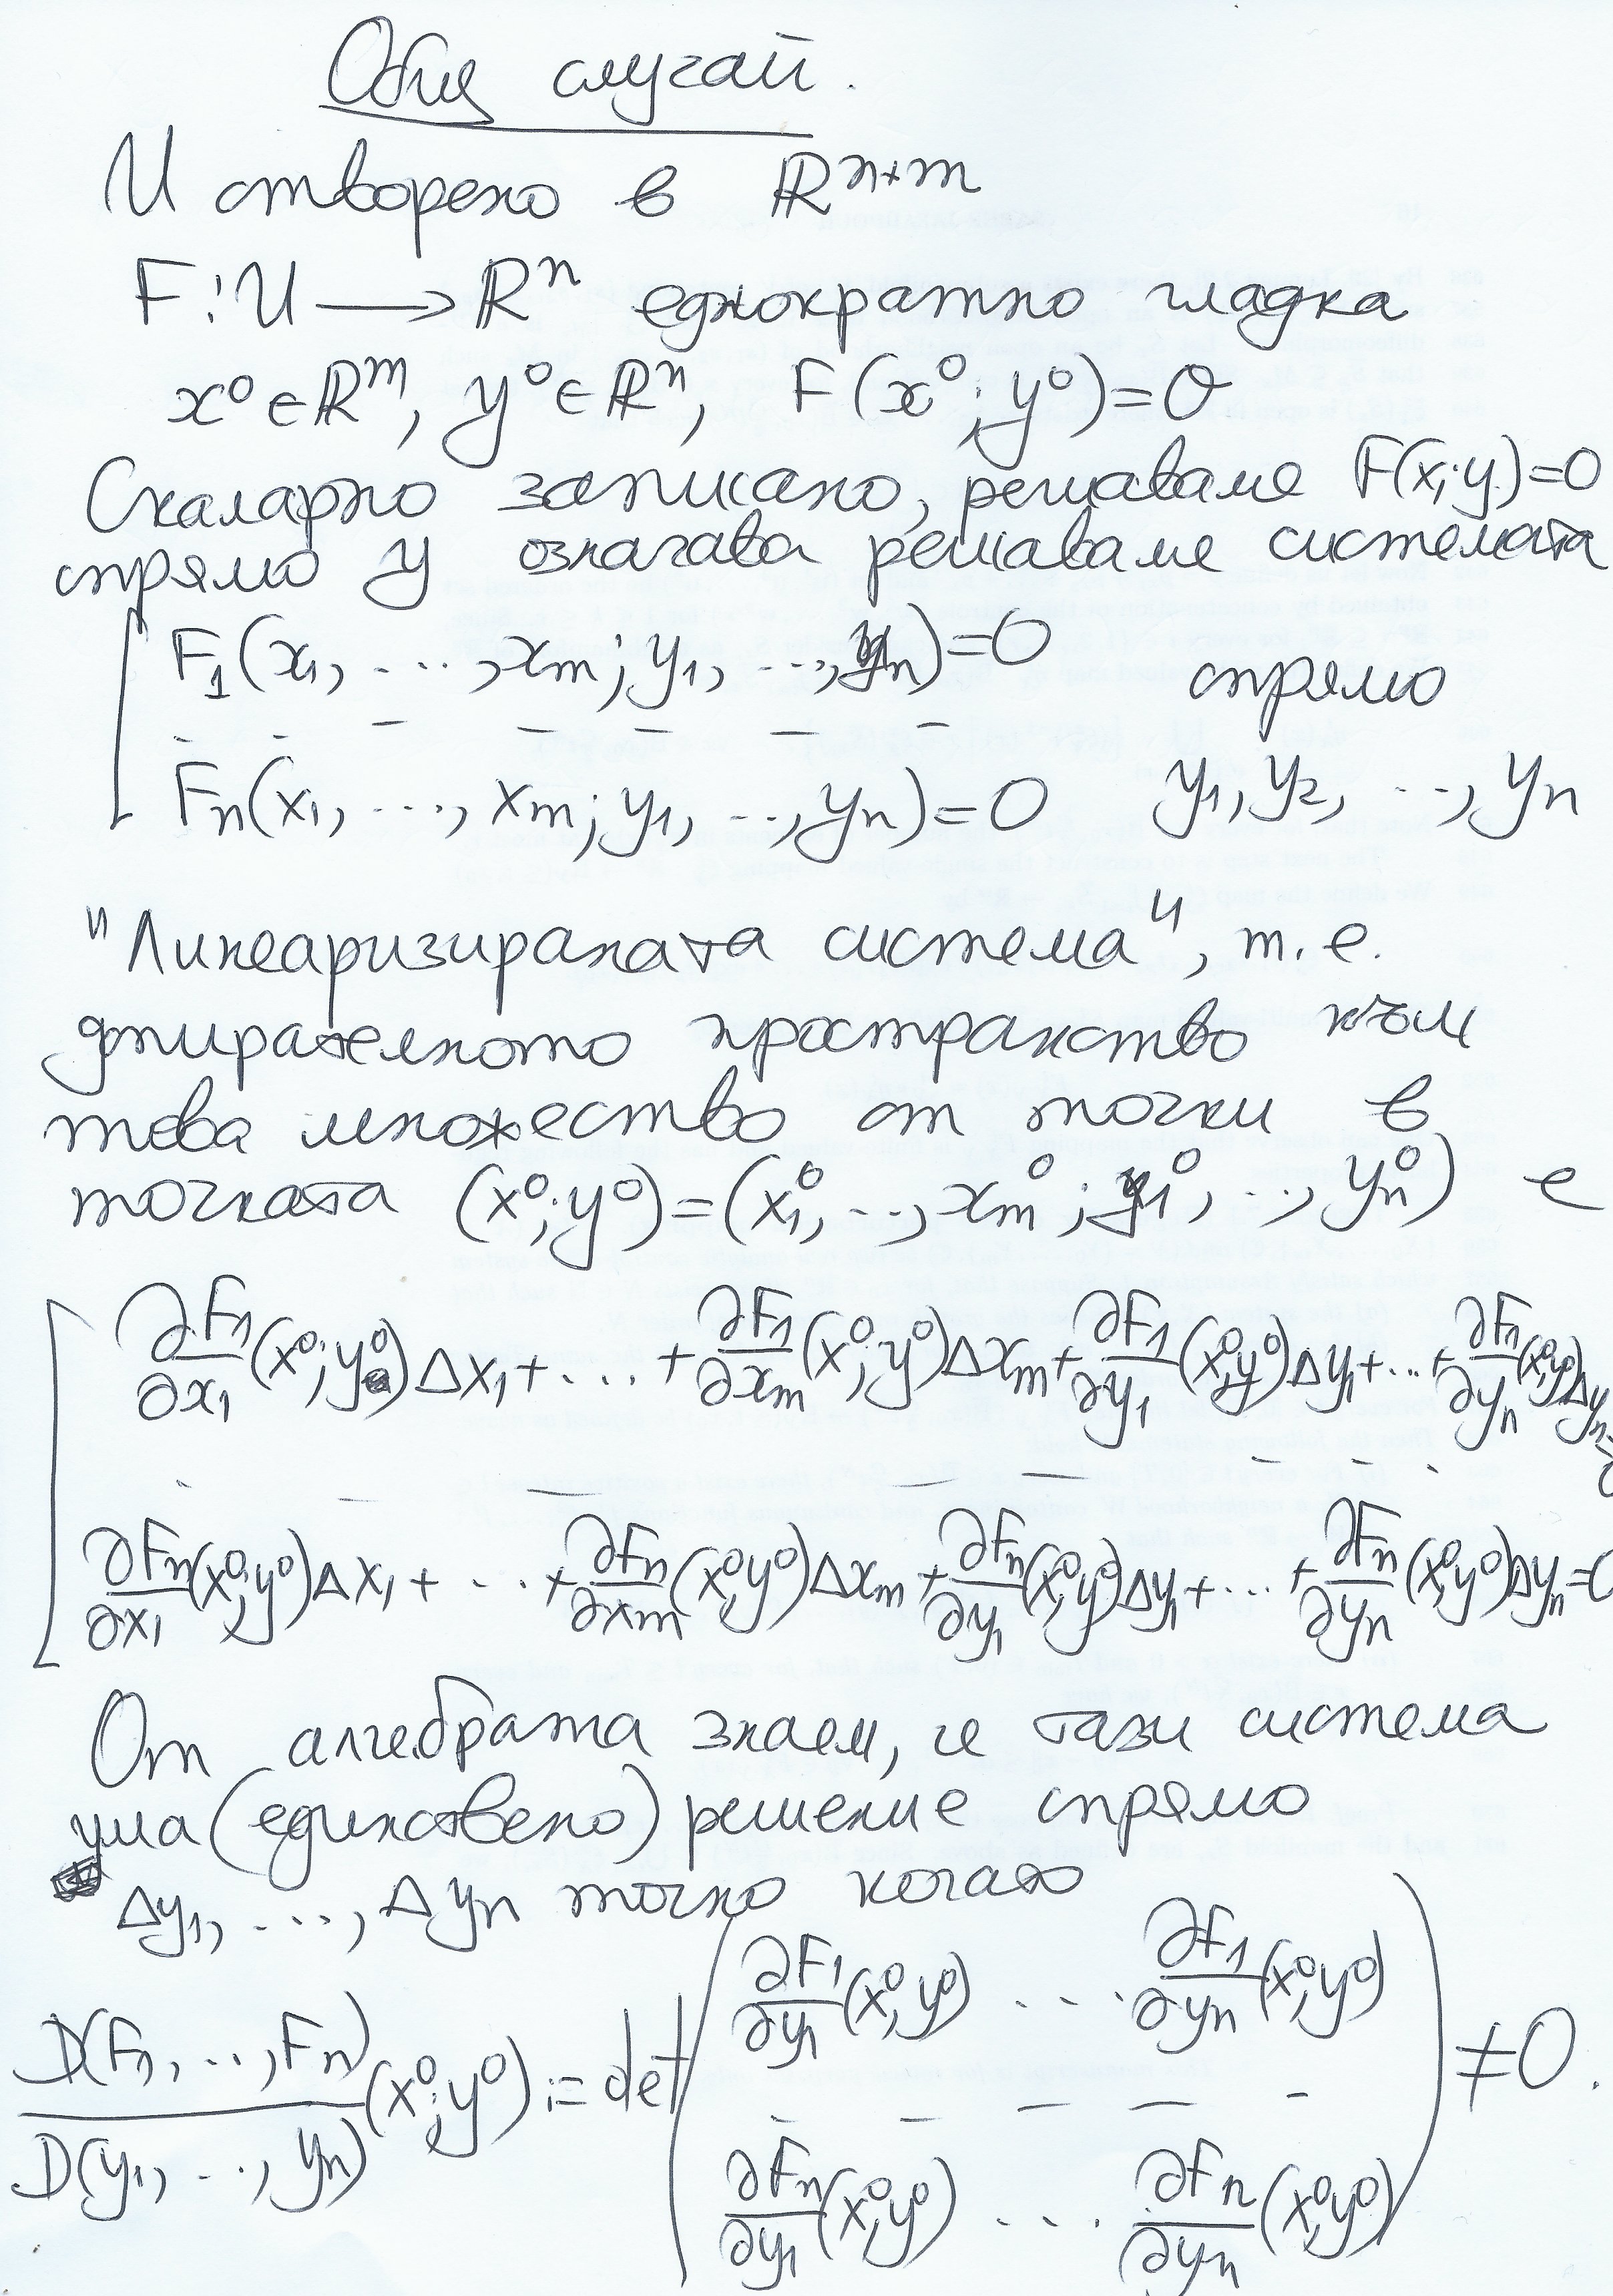 Общ случай.
U отворено в ℝⁿ⁺ᵐ
F : U ⟶ ℝⁿ еднократно гладка
x⁰ ∈ ℝᵐ, y⁰ ∈ ℝⁿ, F(x⁰; y⁰) = 0
Скаларно записано, решаваме F(x; y) = 0
спрямо y означава решаваме системата
F₁(x₁, ..., xₘ; y₁, ..., yₙ) = 0 спрямо
- - - - - - -
Fₙ(x₁, ..., xₘ; y₁, ..., yₙ) = 0 y₁, y₂, ..., yₙ
"Линеаризираната система", т.е.
дпирателното пространство към
това множество от точки в
точката (x⁰; y⁰) = (x₁⁰, ..., xₘ⁰; y₁⁰, ..., yₙ⁰) е
∂F₁/∂x₁ (x⁰; y⁰) Δx₁ + ... + ∂F₁/∂xₘ (x⁰; y⁰) Δxₘ + ∂F₁/∂y₁ (x⁰; y⁰) Δy₁ + ... + ∂F₁/∂yₙ (x⁰; y⁰) Δyₙ = 0
- - - - - - -
∂Fₙ/∂x₁ (x⁰; y⁰) Δx₁ + ... + ∂Fₙ/∂xₘ (x⁰; y⁰) Δxₘ + ∂Fₙ/∂y₁ (x⁰; y⁰) Δy₁ + ... + ∂Fₙ/∂yₙ (x⁰; y⁰) Δyₙ = 0
От алгебрата знаем, че тази система
има (единствено) решение спрямо
Δy₁, ..., Δyₙ точно когато
D(F₁, ..., Fₙ)/D(y₁, ..., yₙ) (x⁰; y⁰) := det ( ∂F₁/∂y₁ (x⁰; y⁰) ... ∂F₁/∂yₙ (x⁰; y⁰)
- - - - -
∂Fₙ/∂y₁ (x⁰; y⁰) ... ∂Fₙ/∂yₙ (x⁰; y⁰) ) ≠ 0.